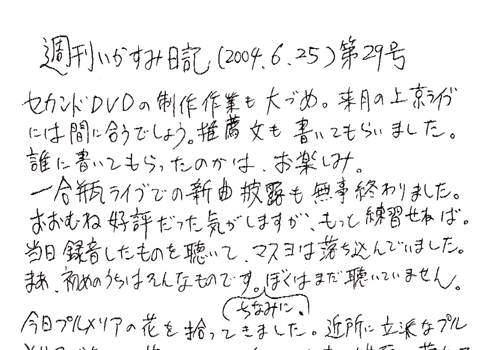 週刊いかすみ日記(2004.6.25)第29号
セカンドDVDの制作作業も大づめ。来月の上京ライブ
には間に合うでしょう。推薦文も書いてもらいました。
誰に書いてもらったのかは、お楽しみ。
一合瓶ライブでの新曲披露も無事終わりました。
おおむね好評だった気がしますが、もっと練習せねば。
当日録音したものを聴いて、マスヨは落ち込んでいました。
まあ、初めのうちはそんなものです。ぼくはまだ聴いていません。
ちなみに。
今日プルメリアの花を拾ってきました。近所に立派なプル